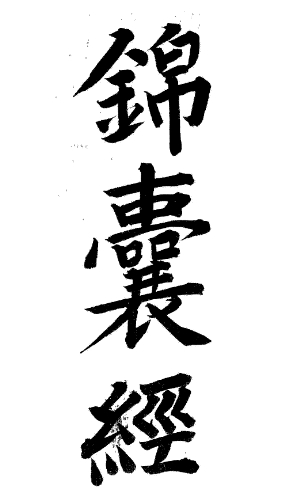 錦囊經